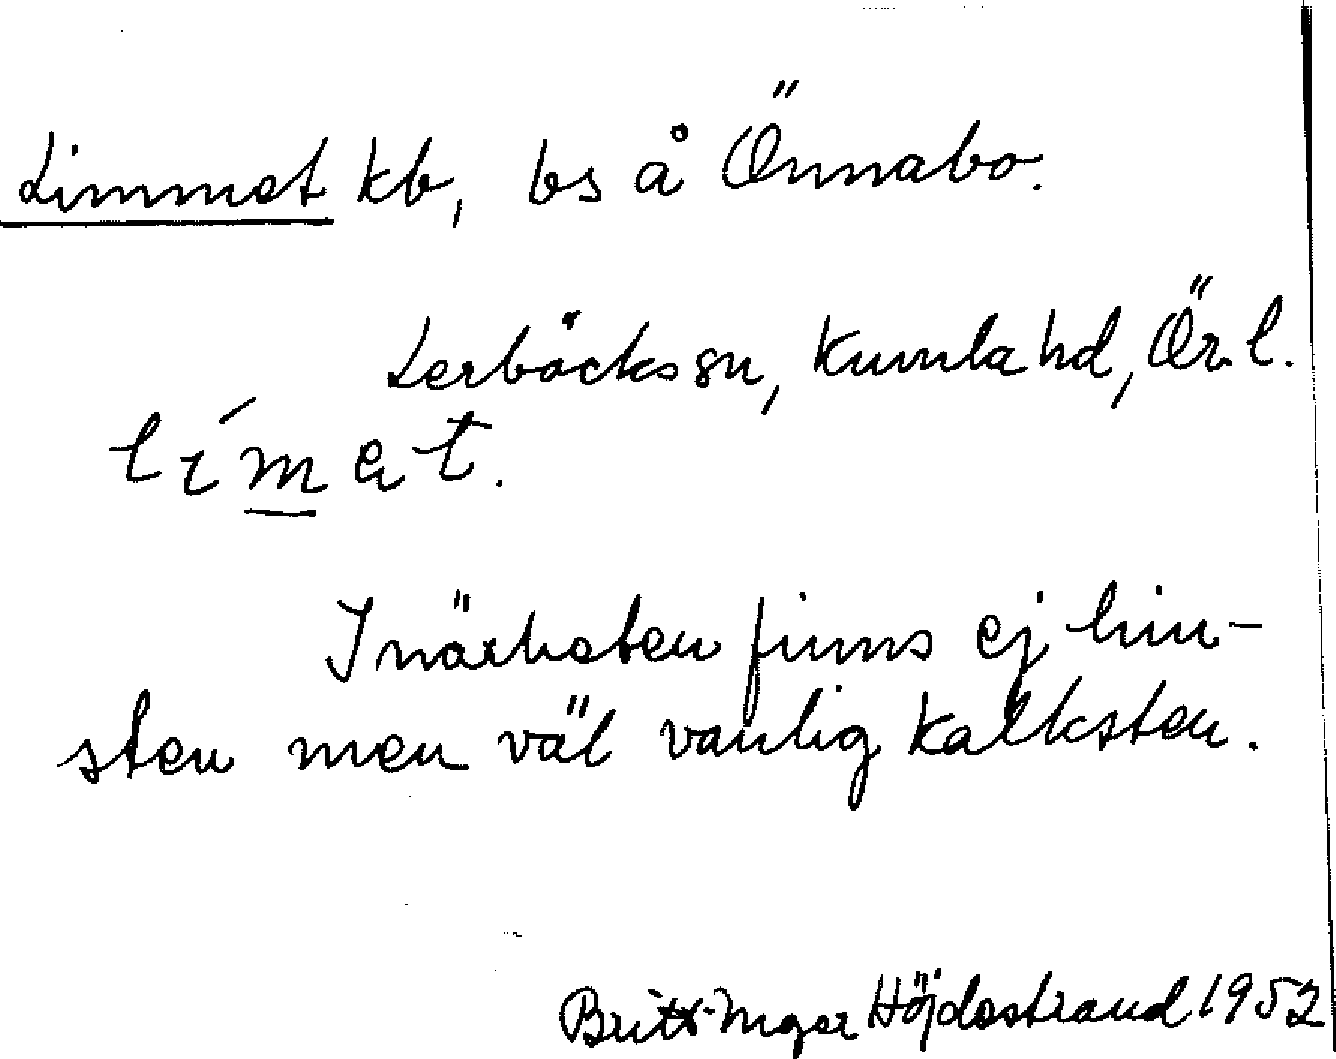 Limmet kb, bs å Önnabo.
Lerbäcks sn, Kumla hd, Ör. l.
límet.
I närheten finns ej lim-
sten men väl vanlig kalksten.
Britt-Inger Höjdestrand 1952